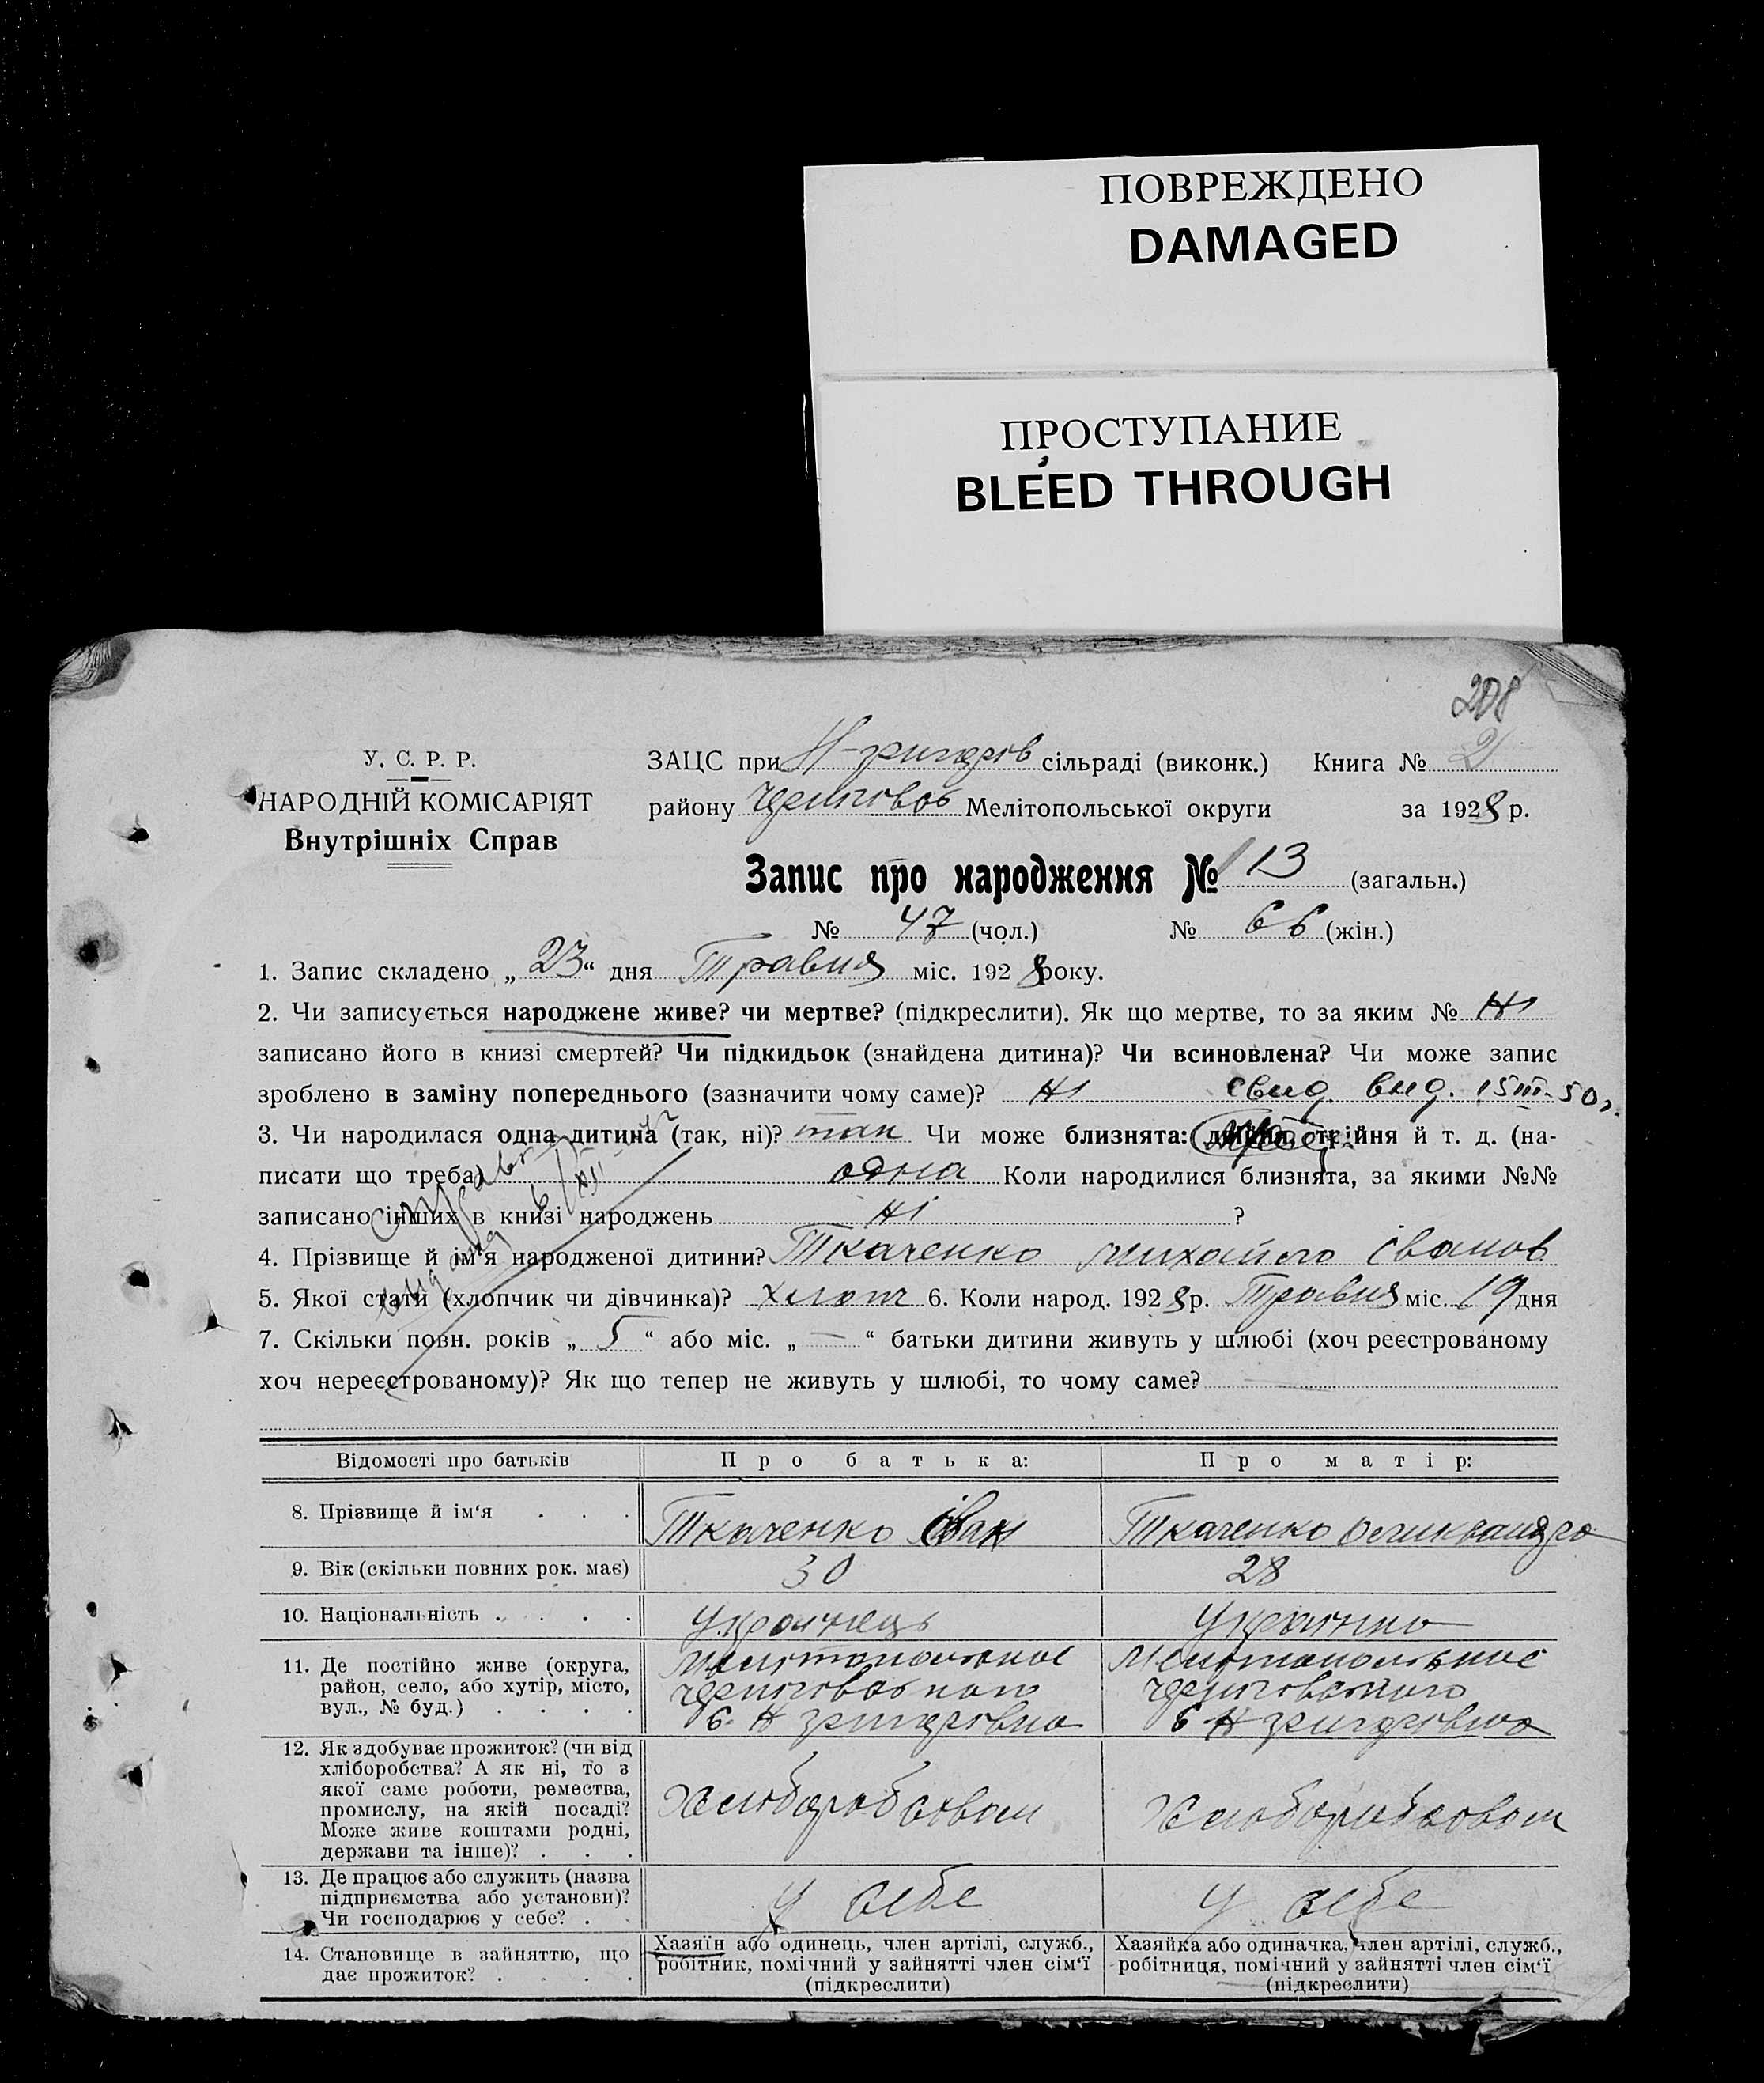 ПОВРЕЖДЕНО
DAMAGED
ПРОСТУПАНИЕ
BLEED THROUGH
208
2
У. С. Р. Р.
НАРОДНІЙ КОМІСАРІЯТ
Внутрішніх Справ
ЗАЦС при сільраді (виконк.) Книга №
району Мелітопольської округи за 1928 р.
Запис про народження № 113 (загальн.)
№ 47 (чол.) № 66 (жін.)
1. Запис складено „ 23 “ дня Травня міс. 1928 року.
2. Чи записується народжене живе? чи мертве? (підкреслити). Як що мертве, то за яким № Ні
записано його в книзі смертей? Чи підкидьок (знайдена дитина)? Чи всиновлена? Чи може запис
зроблено в заміну попереднього (зазначити чому саме)? Ні Свид. выд. 15 III-50 г.
3. Чи народилася одна дитина (так, ні)? так Чи може близнята: двійня, трійня й т. д. (на-
писати що треба) одна Коли народилися близнята, за якими №№
записано інших в книзі народжень Ні ?
4. Прізвище й ім'я народженої дитини? Ткаченко Михайло Іванов
5. Якої статі (хлопчик чи дівчинка)? Хлопч 6. Коли народ. 1928 р. Травня міс. 19 дня
7. Скільки повн. років „ 5 “ або міс. „ — “ батьки дитини живуть у шлюбі (хоч реєстрованому
хоч нереєстрованому)? Як що тепер не живуть у шлюбі, то чому саме? —
Відомості про батьків Про батька: Про матір:
8. Прізвище й ім‘я . . . Ткаченко Іван Ткаченко Олександра
9. Вік (скільки повних рок. має) 30 28
10. Національність . . . . Українець Українка
11. Де постійно живе (округа,
район, село, або хутір, місто,
вул., № буд.) . . . .
12. Як здобуває прожиток? (чи від
хліборобства? А як ні, то з
якої саме роботи, ремества,
промислу, на якій посаді?
Може живе коштами родні,
держави та інше)? . . .
Хліборобством Хліборобством
13. Де працює або служить (назва
підприємства або установи)?
Чи господарює у себе? . .
У себе У себе
14. Становище в зайняттю, що
дає прожиток? . . . .
Хазяїн або одинець, член артілі, служб.,
робітник, помічний у зайнятті член сім‘ї
(підкреслити)
Хазяйка або одиначка, член артілі, служб.,
робітниця, помічний у зайнятті член сім‘ї
(підкреслити)